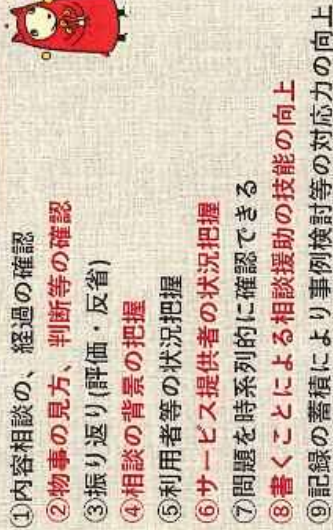 ①内容相談の、経過の確認
②物事の見方、判断等の確認
③振り返り(評価・反省)
④相談の背景の把握
⑤利用者等の状況把握
⑥サービス提供者の状況把握
⑦問題を時系列的に確認できる
⑧書くことによる相談援助の技能の向上
⑨記録の蓄積により事例検討等の対応力の向上